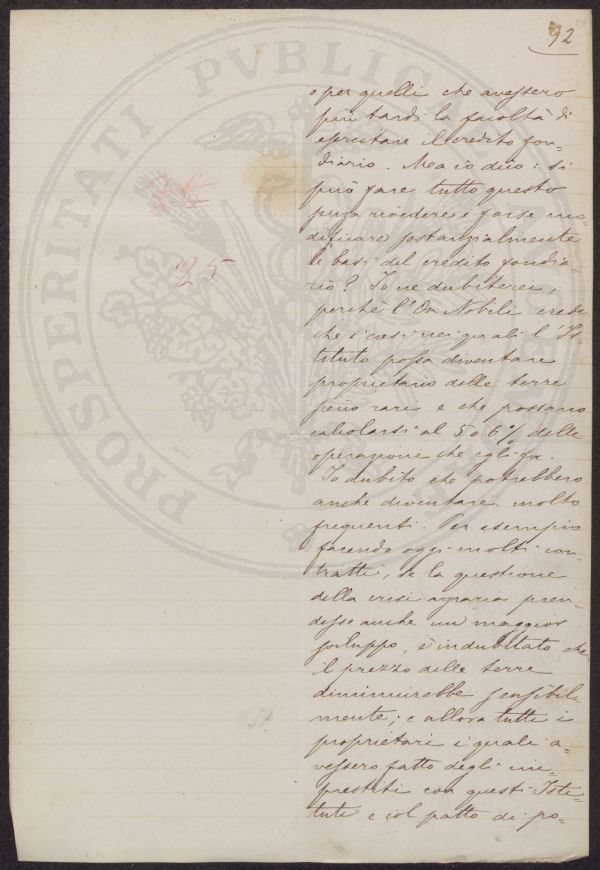 92
o per quelli che avessero
più tardi la facoltà di
esercitare il credito fon=
diario. Ma io dico: si
può fare tutto questo
senza rivedere e forse mo=
dificare sostanzialmente
le basi del credito fondia=
rio? Io ne dubiterei,
perché l'On Nobili crede
che i casi nei quali l'Is=
tituto possa diventare
proprietario delle terre
sieno rari e che possano
calcolarsi al 5 o 6% delle
operazioni che egli fa.
Io dubito che potrebbero
anche diventare molto
frequenti. Per esempio
facendo oggi molti con=
tratti, se la questione
della crisi agraria pren=
desse anche un maggior
sviluppo, è indubitato che
il prezzo delle terre
diminuirebbe sensibil=
mente; e allora tutti i
proprietari i quali a=
vessero fatto degli im=
prestiti con questi Isti=
tuti e col patto di po=
25
PROSPERITATI PVBLICAE